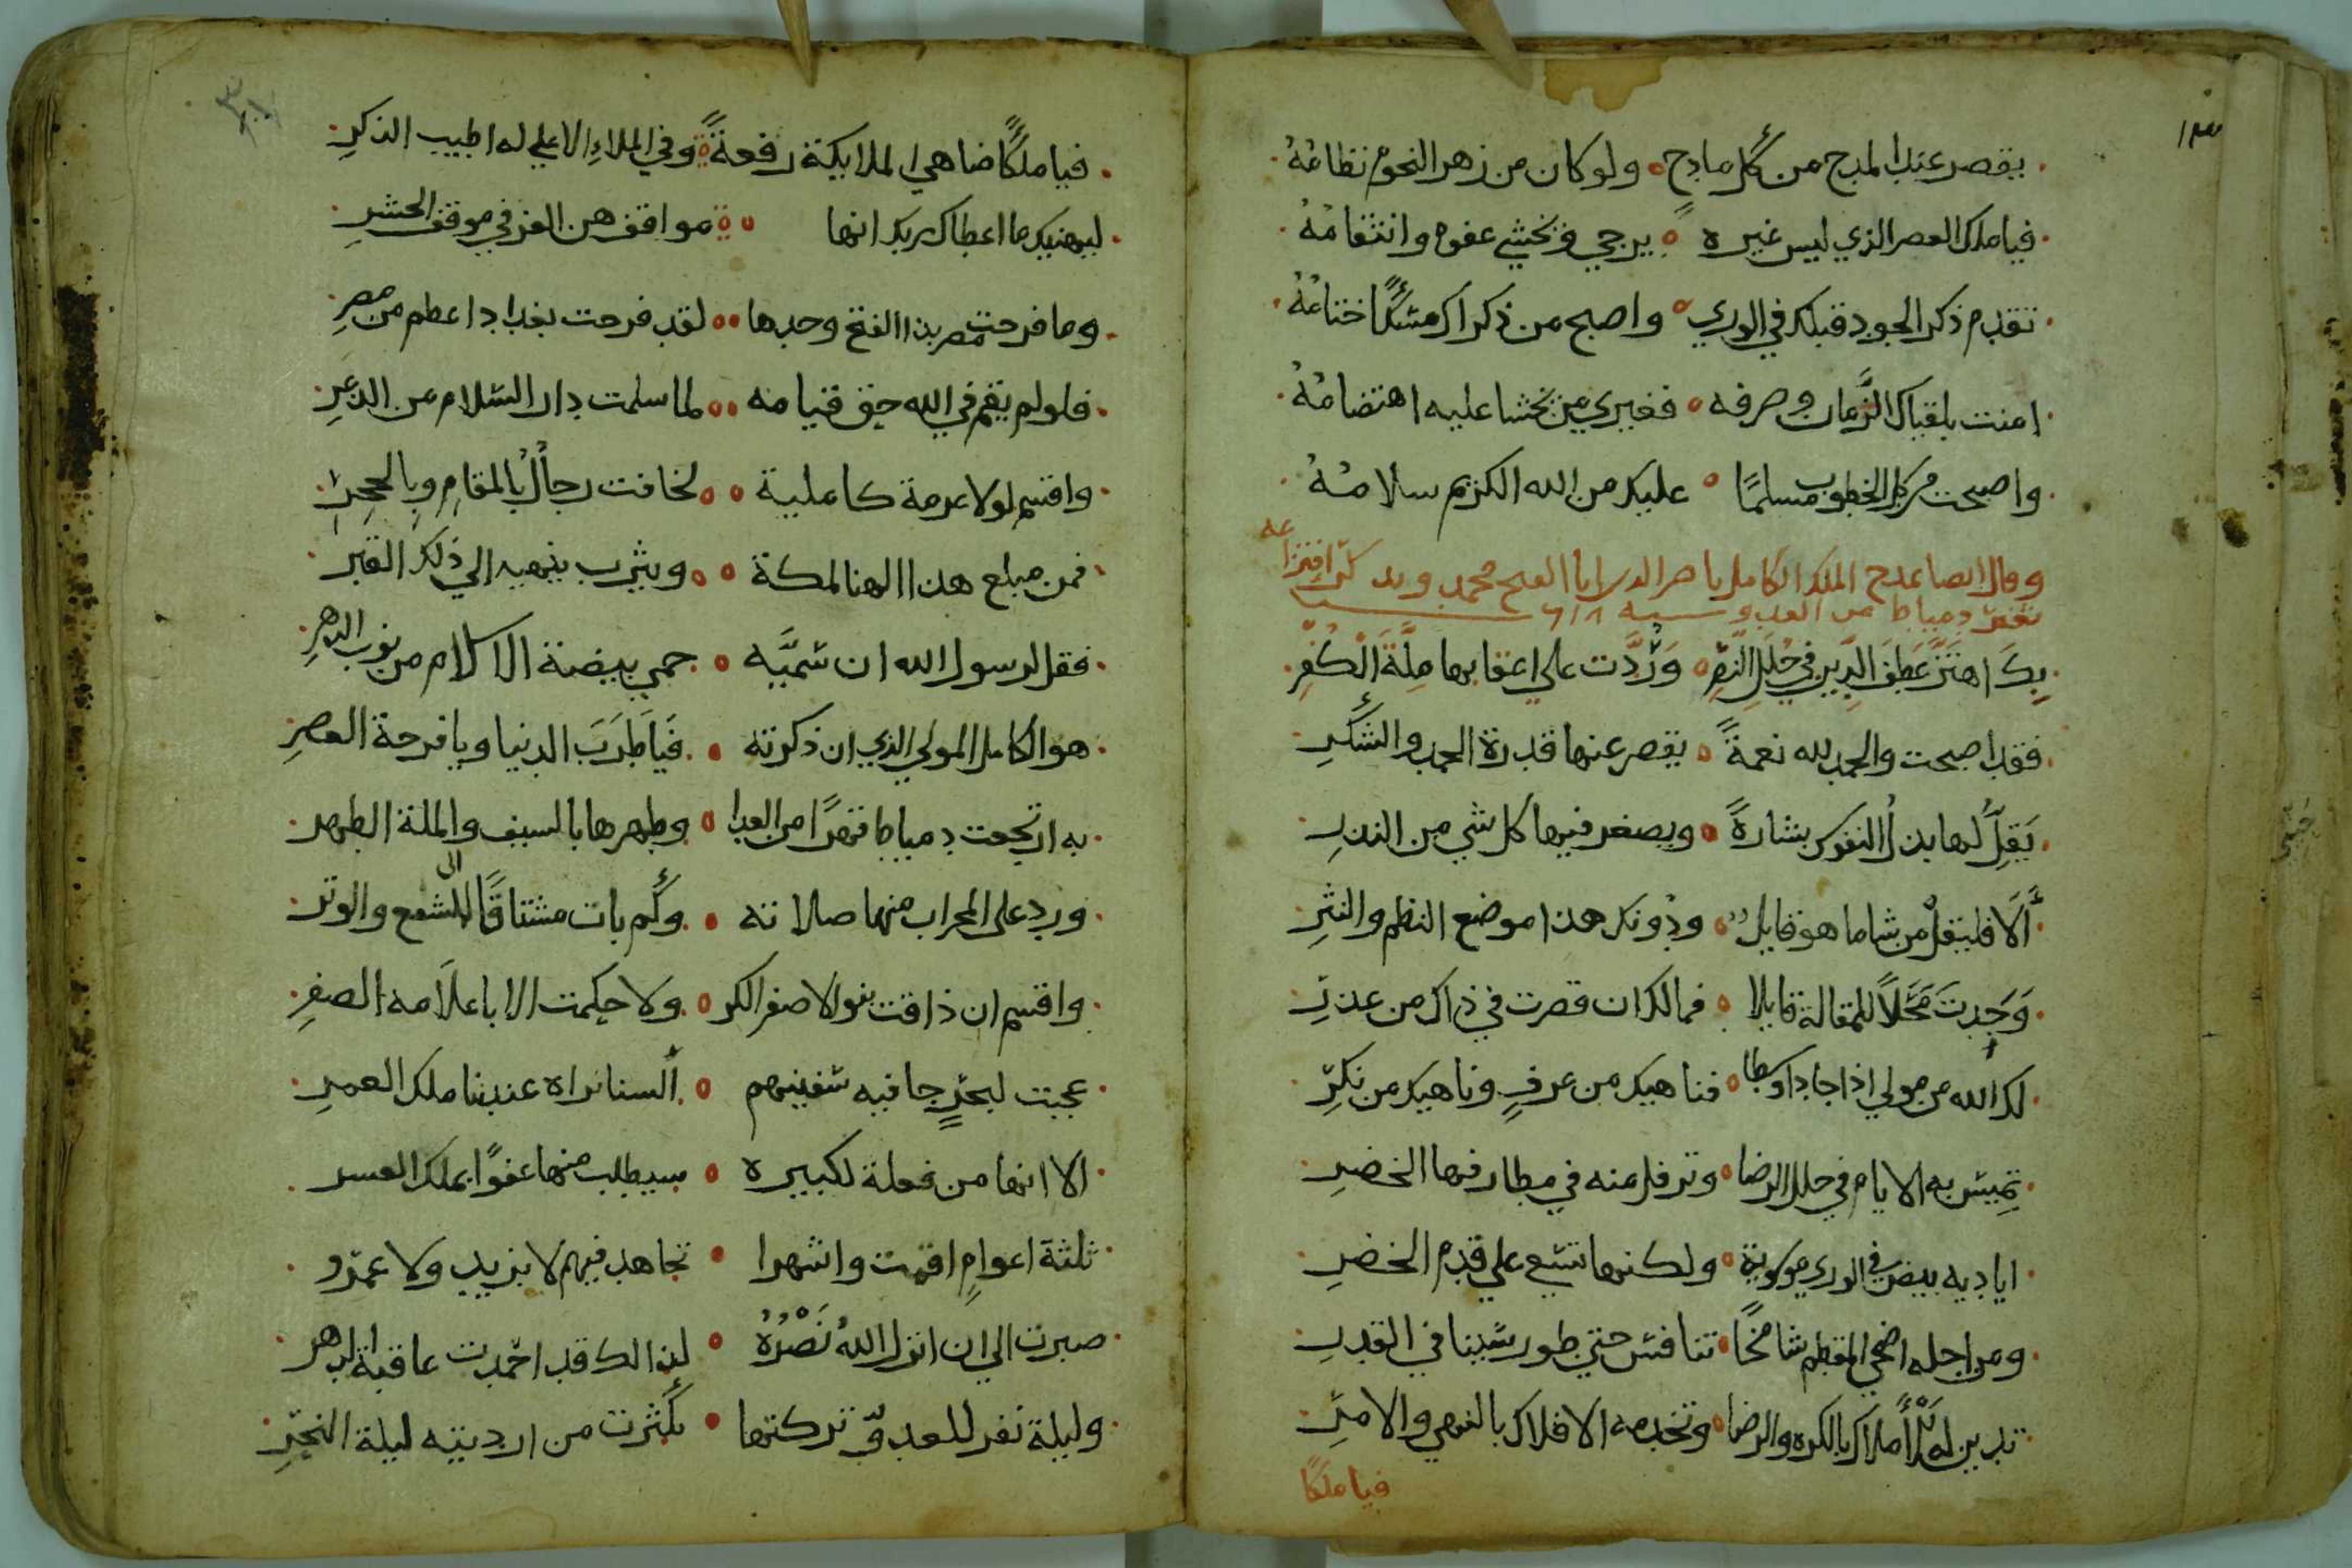 يقصر عنك المدح من كل مادح ولو كان من زهر النجوم نظامُهُ
فيا ملك العصر الذي ليس غيره يرجي و يخشي عفوه وانتقامُهُ
تقدم ذكر الجود قبلك في الوري واصبح من ذكراك مسكًا ختامُهُ
امنت بلقياك الزَّمان وصرفه فغيري من يخشا عليه اهتضامُهُ
واصبحت من كل الخطوب مسلمًا عليك من الله الكريم سلامُهُ
وقال ايضا يمدح الملك الكامل ناصر الدين ابا الفتح محمد ويذكر انتزاعه
ثغر دمياط من العدو سنة ٦١٨
بِكَ اهتَزَّ عَطِفُ الدِّينِ في حُلَلِ النَّصرِ وَرُدَّت علي اعقابها مِلَّةُ الْكُفْرِ
فقد اصبحت والحمد لله نعمةً يقصر عنها قدرة الحمد والشكرِ
يَقِلُّ لها بذلُ النفوس بشارةً ويصغر فيها كل شي من النذرِ
أَلَا فليقلْ من شا ما هو قايلٌ ودونك هذا موضع النظم والنثرِ
وَجَدتَ مَحَلاً للمقالة قابلا فمالك ان قصرت في ذاك من عذرِ
لك الله من مولي اذا جاد اوسطا فناهيك من عرفٍ وناهيك من نكرِ
تميس به الايام في حلل الرضا وترفل منه في مطارفها الخضرِ
اياديه بيض في الوري موسوية ولكنها تسعي علي قدم الخضرِ
ومن اجله اضحي المقطم شامخًا تنافس حتي طور سينا في القدرِ
تدين له الأملاك بالكره والرضا وتخدمه الافلاك بالنهي والامرِ
فيا ملكًا
فيا ملكًا ضاهي الملايكة رفعةً وفي الملاءِ الاعلي له اطيب الذكرِ
ليهنيك ما اعطاك ربك انها مواقف هن الغز في موقف الحشرِ
وما فرحت مصر بذا الفتح وحدها لقد فرحت بغداد اعظم من مصرِ
فلو لم يقم في الله حق قيامه لما سلمت دار السلام من الذعرِ
واقسم لولا عزمة كاملية لخافت رجالٌ بالمقامِ وبالحجرِ
فمن مبلغ هذا الهنا لمكة ويثرب ينهيه الي ذلك القبر
فقل لرسول الله ان سَمَيَّه حمي بيضة الاسلام من نوب الدهرِ
هو الكامل المولي الذي ان ذكرته فَيَا طَرَبَ الدنيا ويا فرحة العصرِ
به ارتجعت دمياط قهرًا من العدا وطهرها بالسيف والملة الطهر
ورد علي المحراب منها صلاته وكم بات مشتاقًا الى الشفع والوتر
واقسم ان ذاقت بنو الاصفر الكر ولا حكمت الا باعلامه الصفرِ
عجبت لبحرٍ جا فيه سفينهم ألسنا نراه عندنا ملك الغمرِ
الا انها من فعلة لكبيره سيطلب منها عفوًا بملك العسر
ثلثة اعوامٍ اقمت واشهرا تجاهد فيهم لا بزيد ولا عمرو
صبرت الي ان انزل اللهُ نَصْرُهُ لذالك قد احمدت عاقبة الدهر
وليلة نفر للعدوّ تركتها بكثرت من ارديته ليلة النحرِ